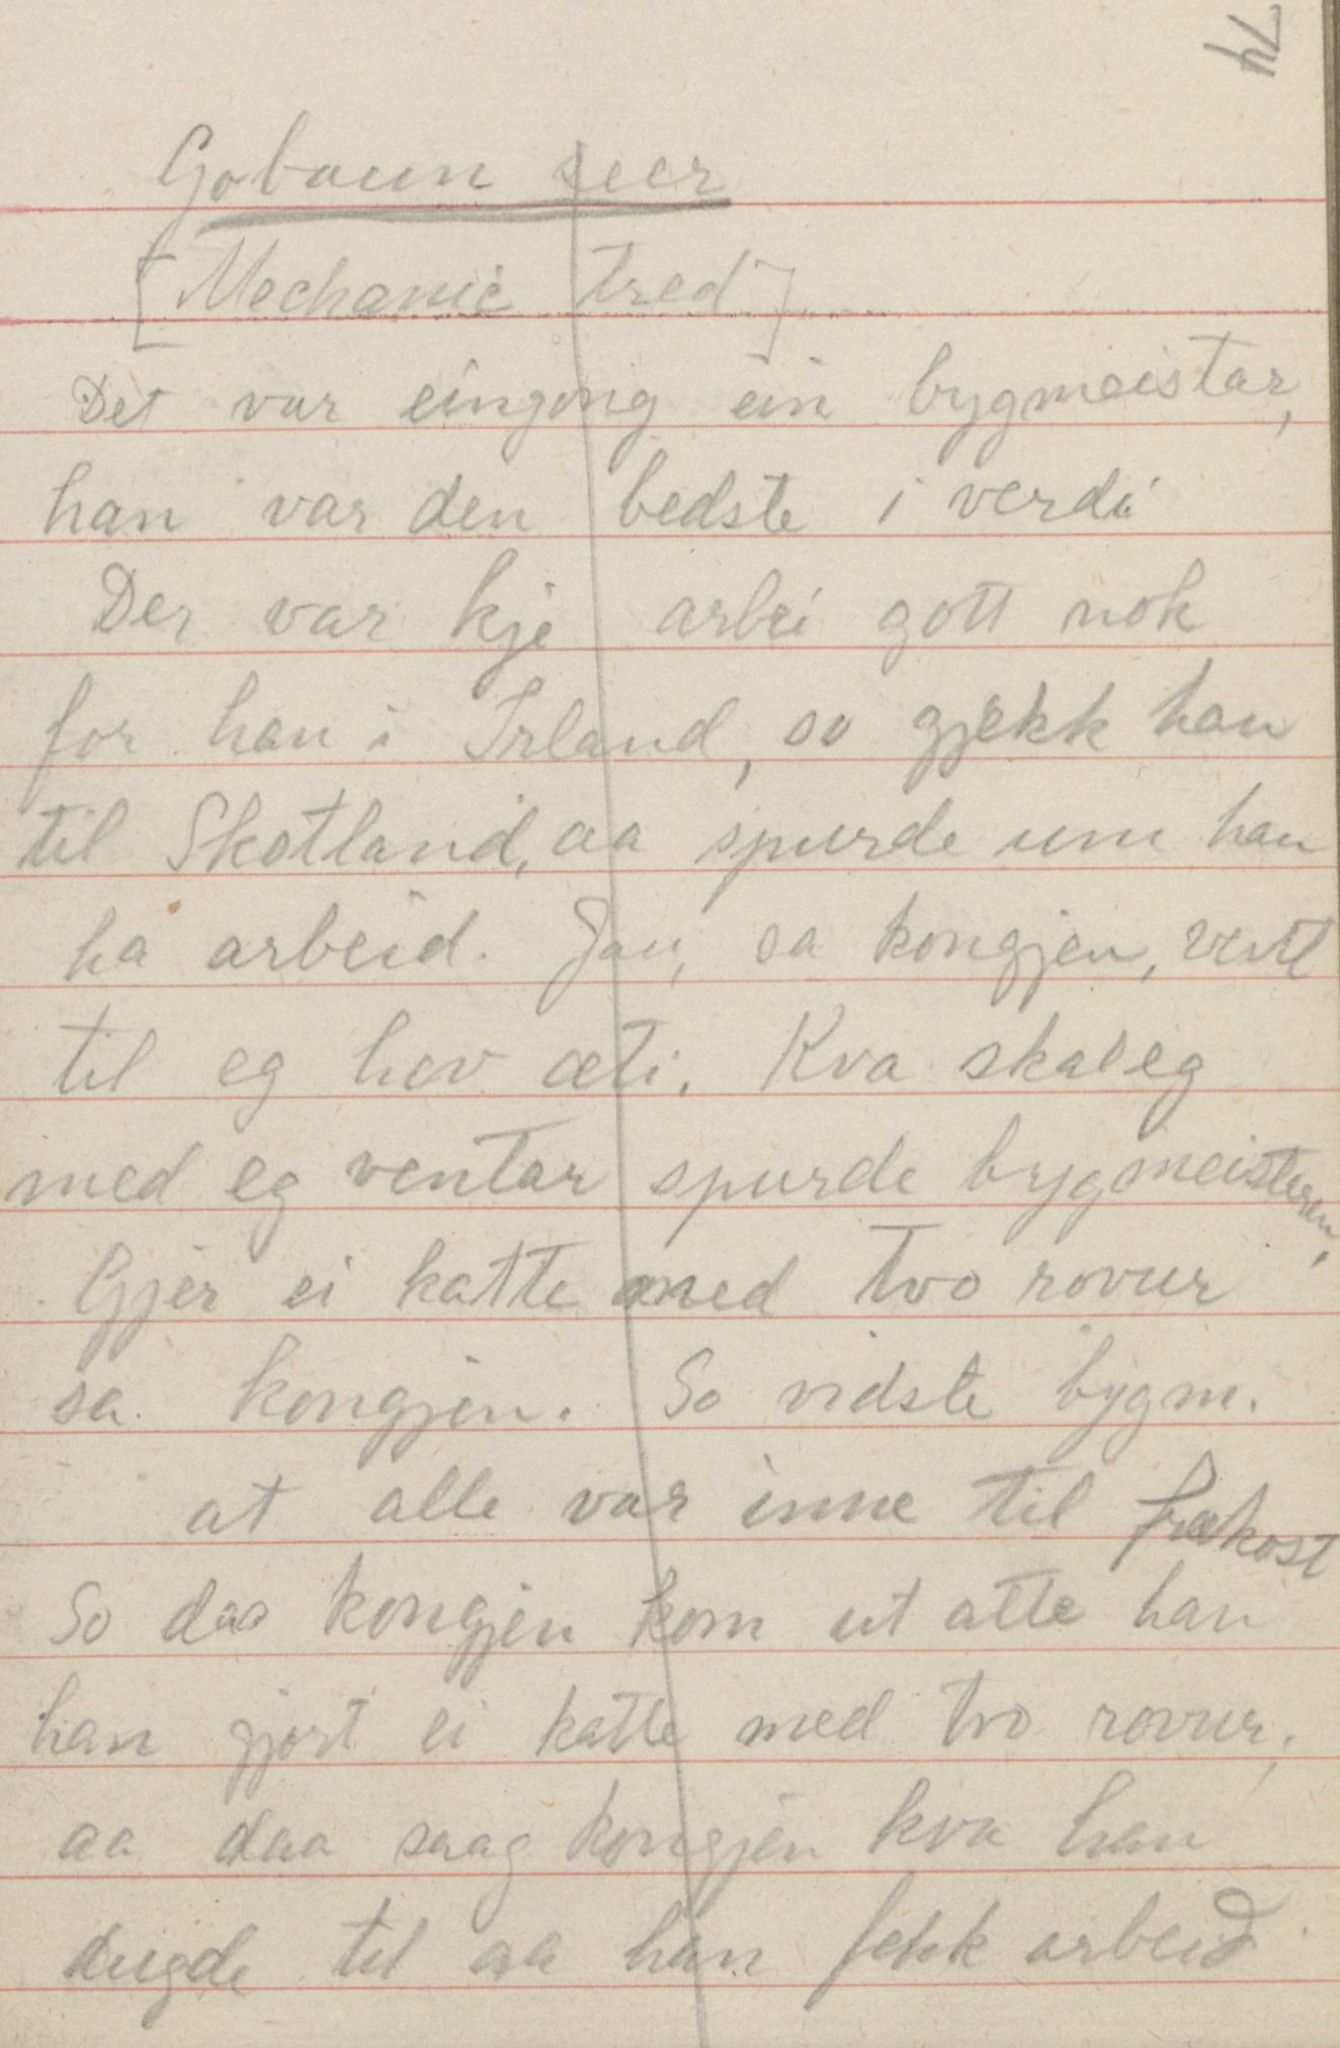 74
Gobaun seer
[Mechanic tred]
Det var eingong ein bygmeistar,
han var den bedste i verdi
Der var kje arbei gott nok
for han i Irland, so gjekk han
til Skotland, aa spurde um han
ha arbeid. Jau, sa kongjen, vent
til eg hev æti. Kva skal eg
med eg ventar spurde bygmeisteren,
Gjer ei katte med two rovur
sa kongjen. So vidste bygm.
at alle var inne til frukost
So daa kongjen kom ut atte han
han gjort ei katte med two rovur;
aa daa saag kongjen kva han
dugde til aa han fekk arbeid